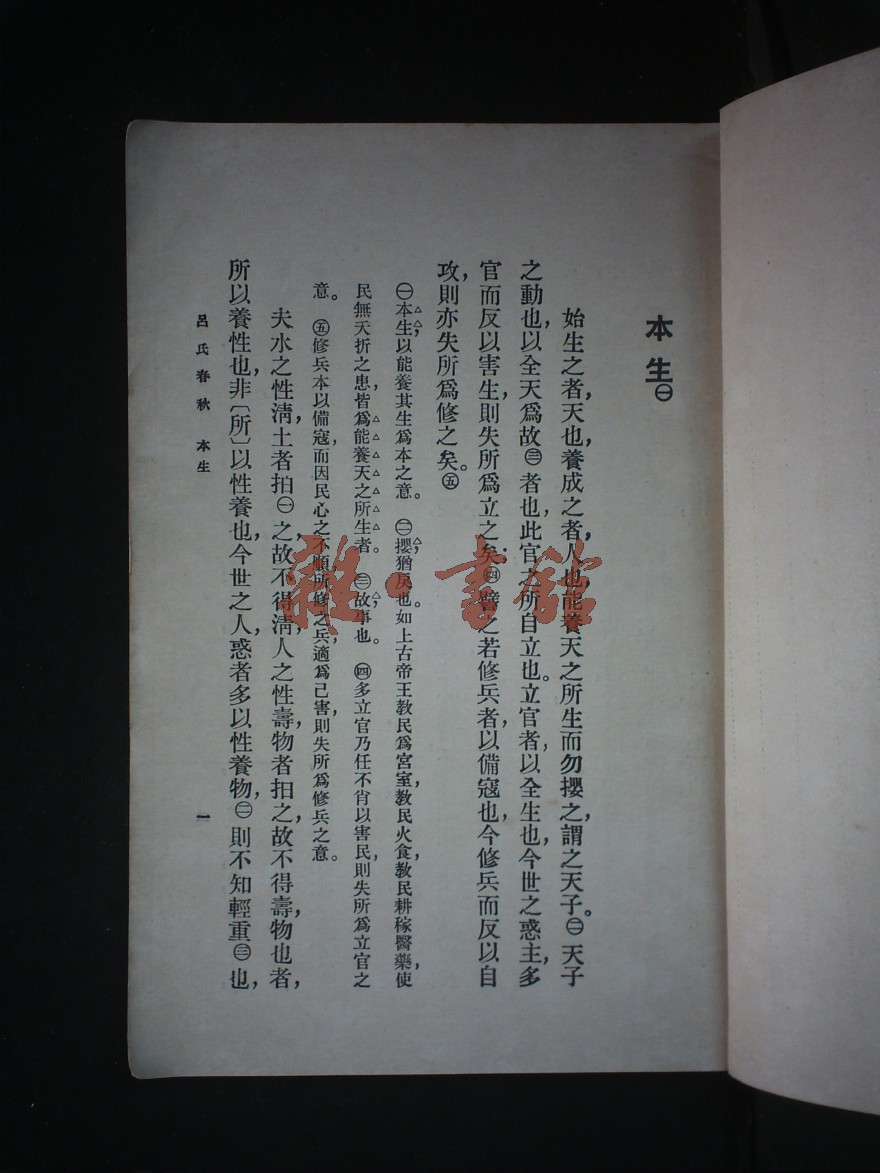 本生㊀
始生之者,天也,養成之者,人也,能養天之所生而勿攖之,謂之天子。㊁天子
之動也,以全天爲故㊂者也,此官之所自立也。立官者,以全生也,今世之惑主,多
官而反以害生,則失所爲立之矣;㊃譬之若修兵者,以備寇也,今修兵而反以自
攻,則亦失所爲修之矣。㊄
㊀本生,以能養其生爲本之意。 ㊁攖,猶戾也。如上古帝王教民爲宮室,教民火食,教民耕稼醫藥,使
民無夭折之患,皆爲能養天之所生者。 ㊂故,事也。 ㊃多立官乃任不肖以害民,則失所爲立官之
意。 ㊄修兵本以備寇,而因民心之不順,所修之兵,適爲己害,則失所爲修兵之意。
夫水之性清,土者抇㊀之,故不得清,人之性壽,物者抇之,故不得壽,物也者,
所以養性也,非〔所〕以性養也,今世之人,惑者多以性養物,㊁則不知輕重㊂也,
呂氏春秋 本生
一
雜·書館